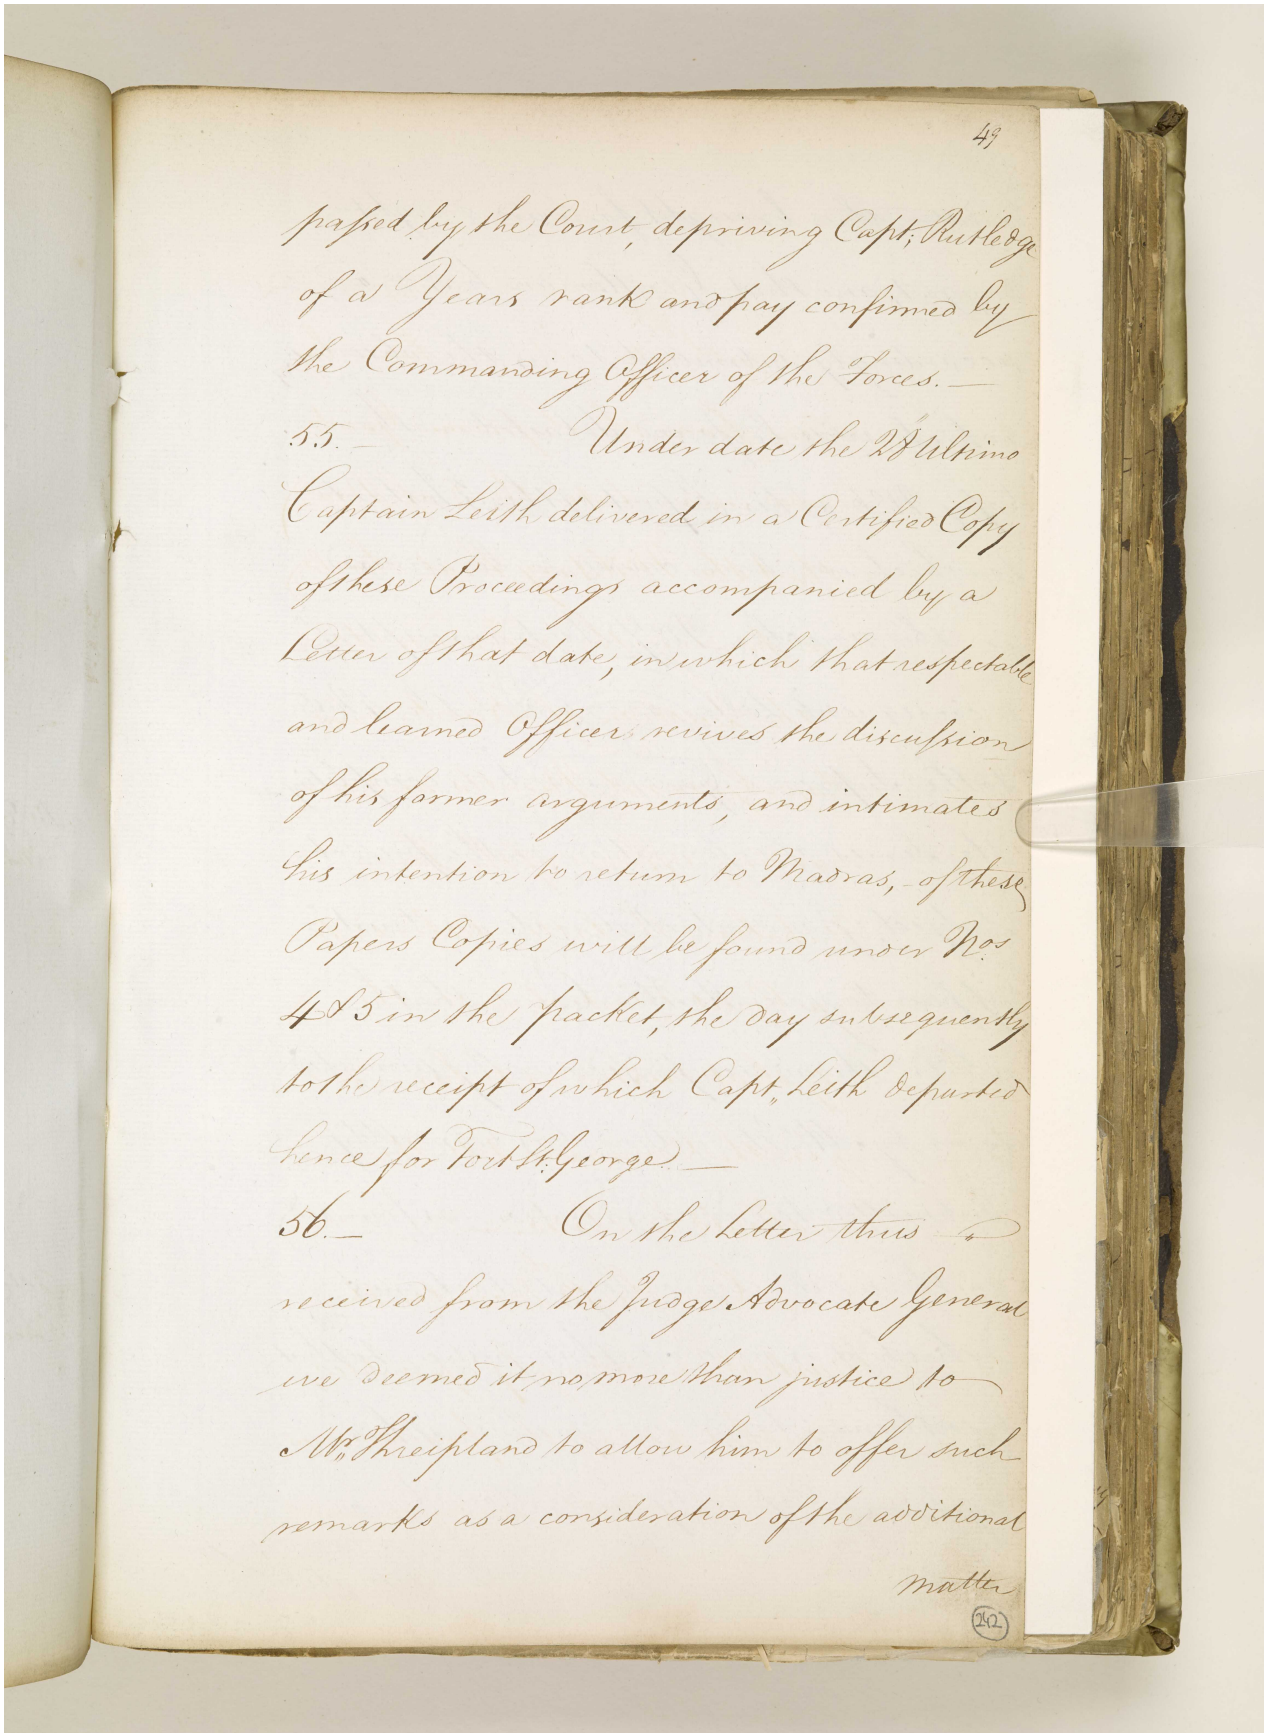 49
paſsed by the Court, depriving Capt; Rutledge
of a Years rank and pay confirmed by
the Commanding Officer of the Forces. —
55. — Under date the 28 Ultimo
Captain Leith delivered in a Certified Copy
of these Proceedings accompanied by a
Letter of that date, in which that respectable
and learned Officer revives the discuſsion
of his former arguments, and intimates
his intention to return to Madras, - of these
Papers Copies will be found under Nos.
4 & 5 in the packet, the day subsequently
to the receipt of which Capt,, Leith departed
hence for Fort St. George. —
56. — On the Letter thus
received from the Judge Advocate General
we deemed it no more than justice to
Mr,, Threipland to allow him to offer such
remarks as a consideration of the additional
matter
242